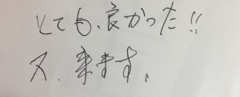 とても、良かった!!
又、来ます。